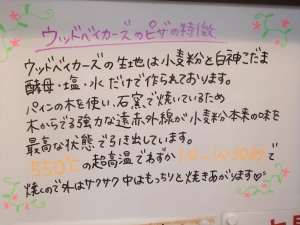 ウッドベイカーズのピザの特徴
ウッドベイカーズの生地は小麦粉と白神こだま
酵母・塩・水だけで作られております。
パインの木を使い、石窯で焼いているため
木からでる強力な遠赤外線が小麦粉本来の味を
最高な状態で引き出しています。
550℃の超高温でわずか1分〜1分30秒で
焼くので外はサクサク中はもっちりと焼きあがります♡